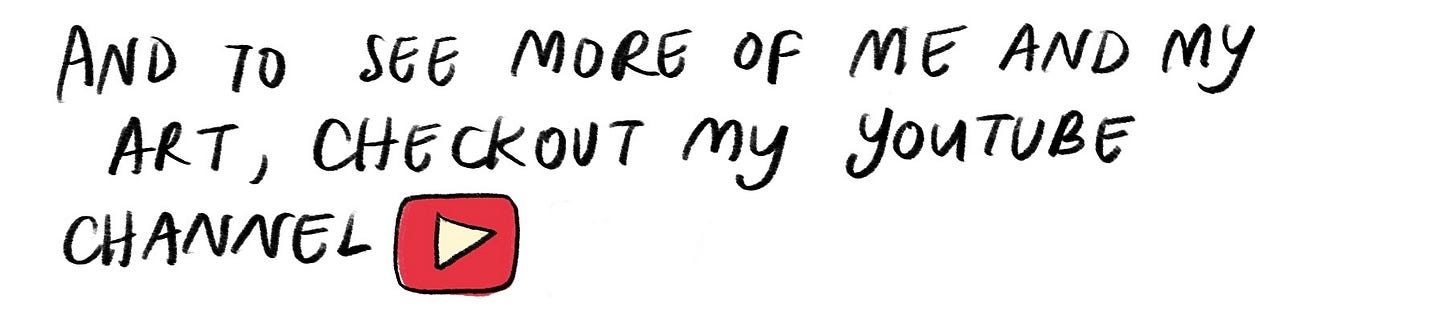 AND TO SEE MORE OF ME AND MY
ART, CHECKOUT MY YOUTUBE
CHANNEL